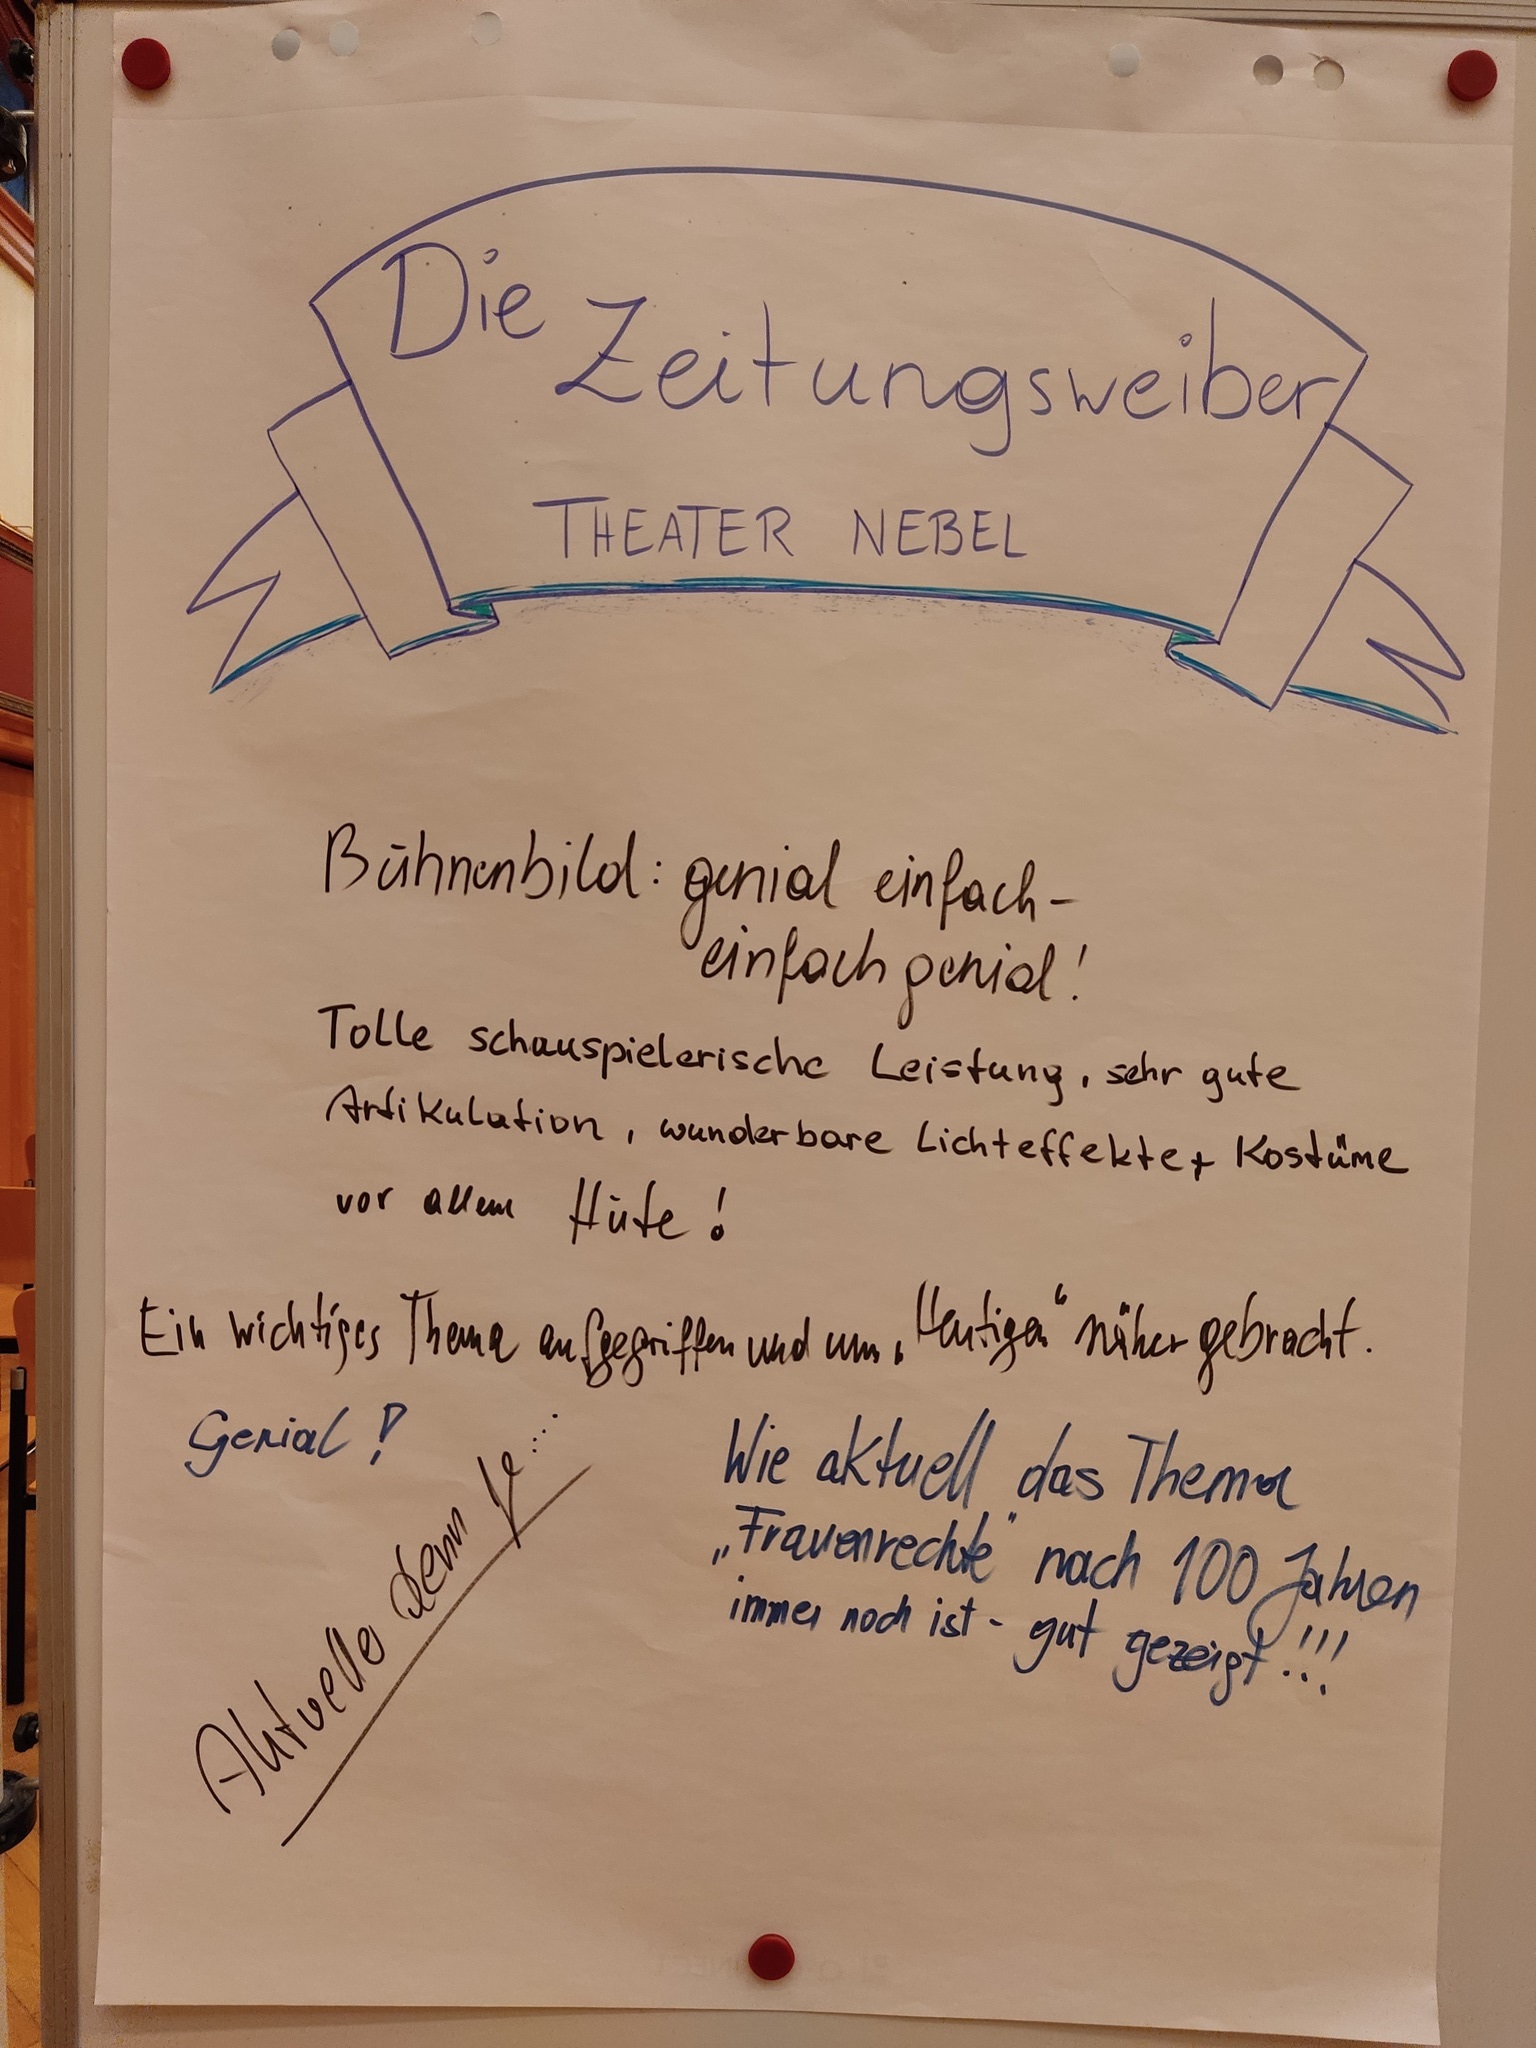 Die Zeitungsweiber
THEATER NEBEL
Bühnenbild: genial einfach -
einfach genial!
Tolle schauspielerische Leistung, sehr gute
Artikulation, wunderbare Lichteffekte + Kostüme
vor allem Hüte!
Ein wichtiges Thema aufgegriffen und uns „Heutigen“ näher gebracht.
Genial!
Aktueller denn je....
Wie aktuell das Thema
„Frauenrechte“ nach 100 Jahren
immer noch ist - gut gezeigt!!!